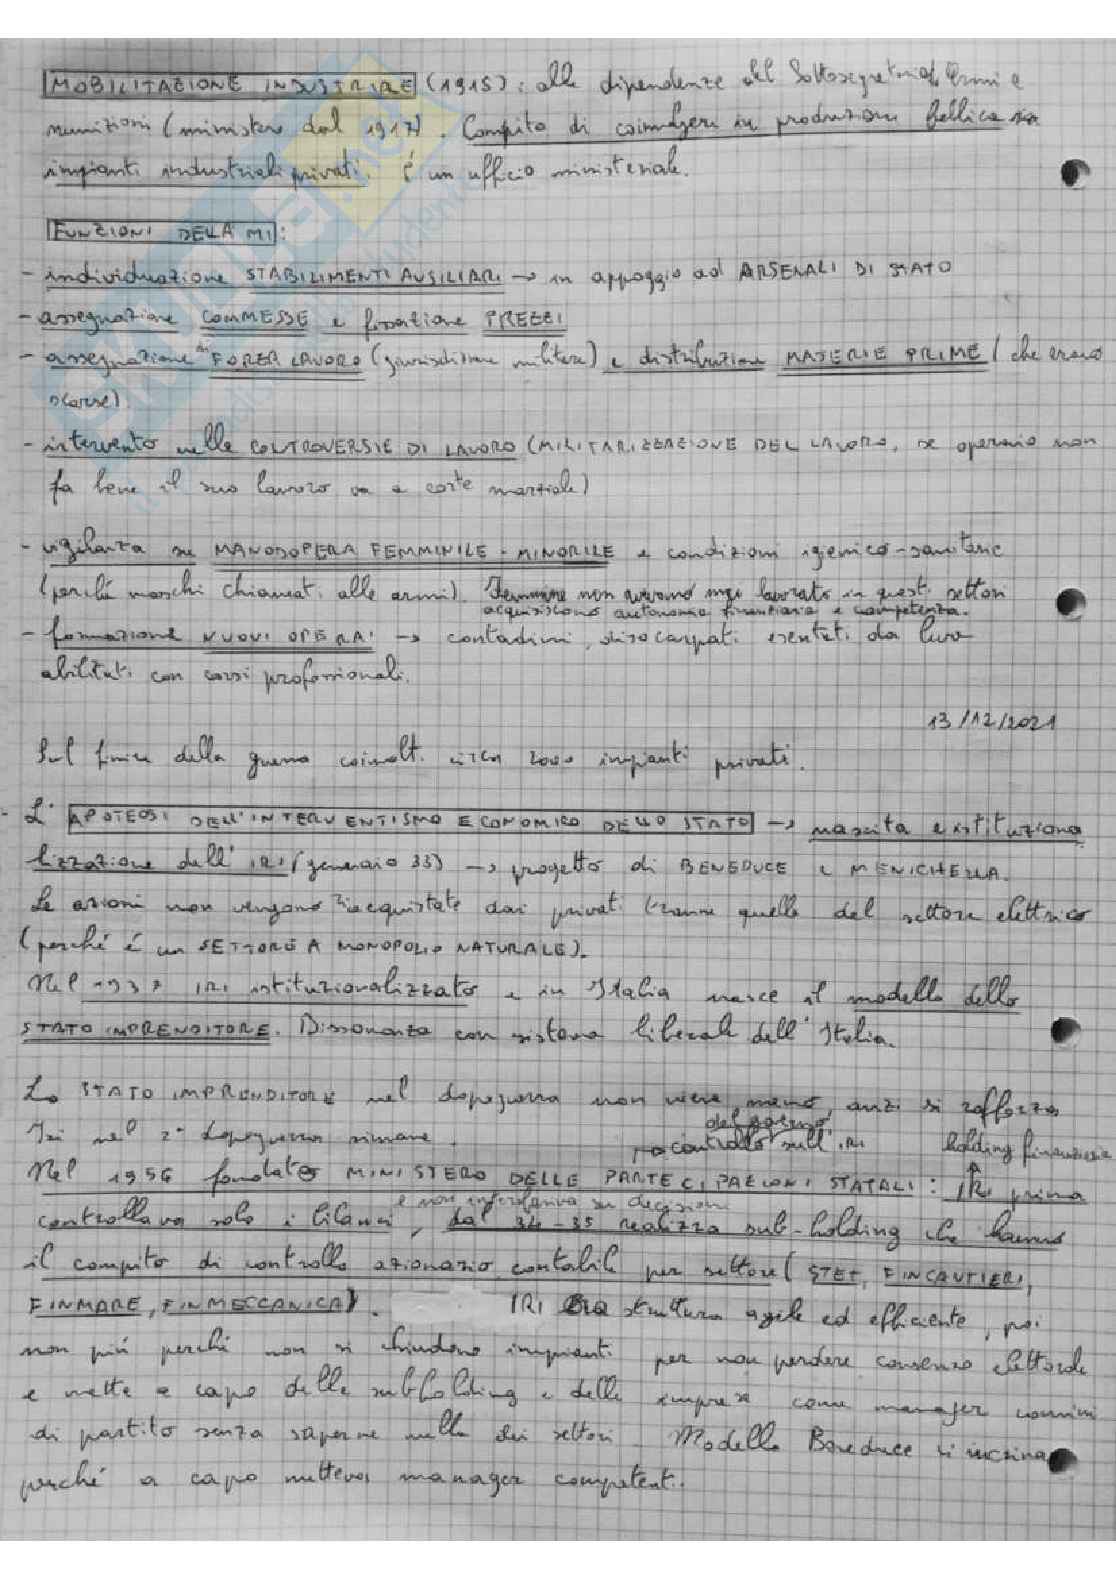 MOBILITAZIONE INDUSTRIALE (1915): alle dipendenze del Sottosegretariato Armi e
munizioni (ministero dal 1917). Compito di coinvolgere in produzione bellica
impianti industriali privati. É un ufficio ministeriale.
FUNZIONI DELLA MI:
- individuazione STABILIMENTI AUSILIARI → in appoggio ad ARSENALI DI STATO
- assegnazione COMMESSE e fissazione PREZZI
- assegnazione di FORZA LAVORO (giurisdizione militare) e distribuzione MATERIE PRIME (che erano
scarse).
- intervento nelle CONTROVERSIE DI LAVORO (MILITARIZZAZIONE DEL LAVORO, se operaio non
fa bene il suo lavoro va a corte marziale)
- vigilanza su MANODOPERA FEMMINILE - MINORILE e condizioni igienico-sanitarie
(perché maschi chiamati alle armi). Femmine non avevano mai lavorato in questi settori
acquisiscono autonomia finanziaria e competenza.
- formazione NUOVI OPERAI → contadini, disoccupati esentati da leva
abilitati con corsi professionali.
13/12/2021
Sul finire della guerra coinvolti circa 2000 impianti privati.
- L' APOTEOSI DELL'INTERVENTISMO ECONOMICO DELLO STATO → nascita e istituziona
lizzazione dell' IRI (gennaio 33) → progetto di BENEDUCE e MENICHELLA.
Le azioni non vengono riacquistate dai privati tranne quelle del settore elettrico
(perché é un SETTORE A MONOPOLIO NATURALE).
Nel 1937 IRI istituzionalizzato e in Italia nasce il modello dello
STATO IMPRENDITORE. Dissonanza con sistema liberale dell'Italia.
Lo STATO IMPRENDITORE nel dopoguerra non viene meno, anzi si rafforza
Iri nel 2° dopoguerra rimane.
del governo
→ controllo sull'IRI
holding finanziaria
Nel 1956 fondato MINISTERO DELLE PARTECIPAZIONI STATALI: IRI prima
e non interferiva su decisioni
controllava solo i bilanci, dal 34-35 realizza sub-holding che hanno
il compito di controllo azionario contabile per settore (STET, FINCANTIERI,
FINMARE, FINMECCANICA). IRI era struttura agile ed efficiente, poi
non più perché non si chiudono impianti per non perdere consenso elettorale
e mette a capo delle subholding e delle imprese come manager uomini
di partito senza saperne nulla dei settori. Modello Beneduce si incrina
perché a capo metteva manager competenti.